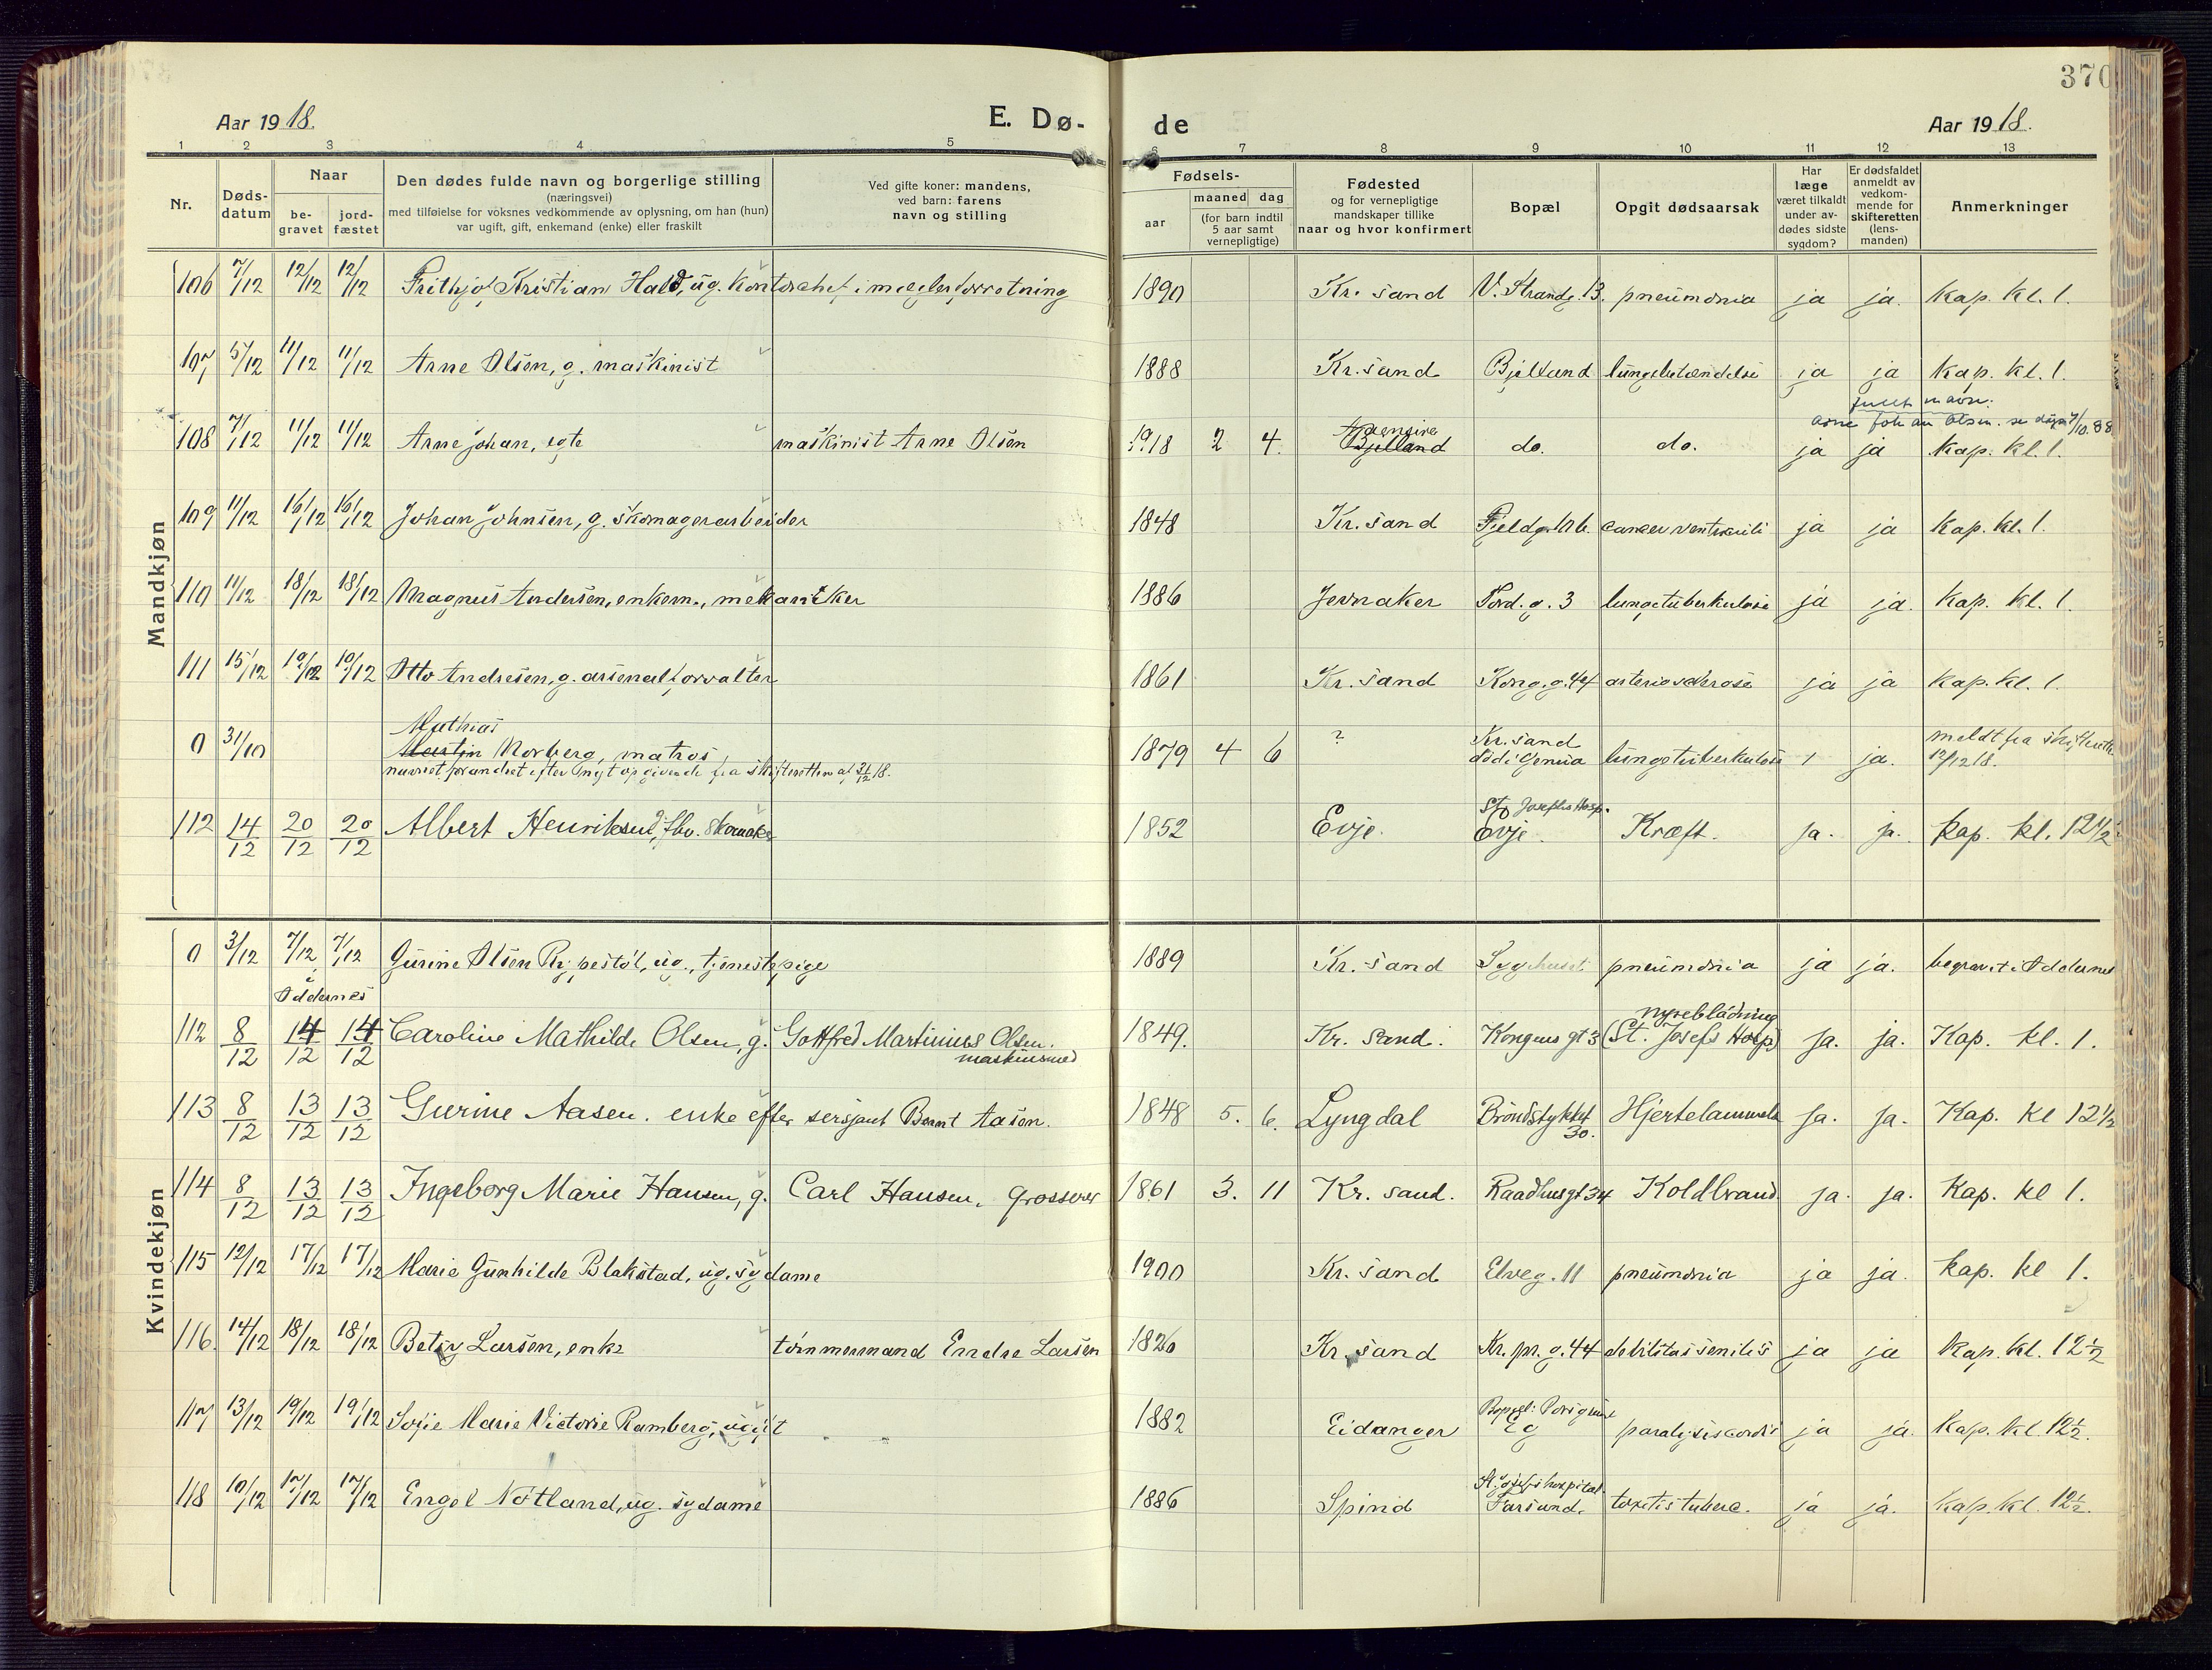 370
Aar 1918.
E. Dø-
de
Aar 1918.
1 2 3 4 5 6 7 8 9 10 11 12 13
Nr.
Døds-
datum
Naar
be-
gravet
jord-
fæstet
Den dødes fulde navn og borgerlige stilling
(næringsvei)
med tilføielse for voksnes vedkommende av oplysning, om han (hun)
var ugift, gift, enkemand (enke) eller fraskilt
Ved gifte koner: mandens,
ved barn: farens
navn og stilling
Fødsels-
aar
maaned dag
(for barn indtil
5 aar samt
vernepligtige)
Fødested
og for vernepligtige
mandskaper tillike
naar og hvor konfirmert
Bopæl
Opgit dødsaarsak
Har
læge
været tilkaldt
under av-
dødes sidste
sygdom?
Er dødsfaldet
anmeldt av
vedkom-
mende for
skifteretten
(lens-
manden)
Anmerkninger
Mandkjøn
106 7/12 12/12 12/12 Frithjof Kristian Hald, ug. kontorchef i mæglerforretning 1890 Kr. sand V. Strandg. 13. pneumonia ja ja. Kap. kl. 1.
107 5/12 11/12 11/12 Arne Olsen, g. maskinist 1888 Kr. sand Bjelland lungebetændelse ja ja Kap. kl. 1.
fullt navn:
Arne Johan Olsen. se 7/10.88
108 7/12 11/12 11/12 Arne Johan, egte maskinist Arne Olsen 1918 2 4. Bjelland do. do. ja ja Kap. kl. 1.
109 11/12 16/12 16/12 Johan Johnsen, g. skomagerarbeider 1848 Kr. sand Fjeldg. 16. cancer ventriculi ja ja Kap. kl. 1.
110 11/12 18/12 18/12 Magnus Andersen, enkem., mekaniker 1886 Jevnaker Tord. g. 3 lungetuberkulose ja ja. Kap. kl. 1.
111 15/12 19/12 19/12 Otto Andresen, g. arsenalforvalter 1861 Kr. sand Kong. g. 44 arteriosclerose ja ja Kap. kl. 1.
Mathias
0 31/10 Martin Norberg, matros 1879 4 6 ? Kr. sand
død i Genua lungetuberkulose ja. meldt fra skifteretten
12/12 18.
navnet forandret efter nyt opgivende fra skifteretten af 18.
112 14/12 20/12 20/12 Albert Henriksen, fhv. skomaker 1852 Evje. St. Josephs Hosp.
Evje. Kræft. ja. ja. Kap. kl. 12½
Kvindekjøn
0 3/12 7/12 7/12 Gurine Olsen Rypestøl, ug., tjenestepige 1889 Kr. sand Sygehuset pneumonia ja ja. begravet i Oddernes
i
Oddernes
112 8/12 14/12 14/12 Caroline Mathilde Olsen, g. Gottfred Martinius Olsen.
maskinsmed 1849. Kr. sand. Kongens gt 3 nyreblødning
(St. Josefs Hosp) ja. ja. Kap. kl. 1.
113 8/12 13/12 13/12 Gurine Aasen. enke efter sersjant Bernt Aasen. 1848 5. 6. Lyngdal Brøndstykket
30. Hjertelammelse ja. ja. Kap. kl 12½
114 8/12 13/12 13/12 Ingeborg Marie Hansen, g. Carl Hansen, Grosserer 1861 3. 11 Kr. sand. Raadhusgt 34 Koldbrand ja. ja. Kap. kl 1.
115 12/12 17/12 17/12 Marie Gunhilde Blakstad, ug. sydame 1900 Kr. sand Elveg. 11 pneumonia ja ja. Kap. kl 1.
116. 14/12 18/12 18/12 Betsy Larsen, enke tømmermand Endre Larsen 1826 Kr. sand Kr. pr. g. 44 debilitas senilis ja ja Kap. kl. 12½
117 13/12 19/12 19/12 Sofie Marie Victorie Ramberg, ugift 1882 Eidanger Bopæl: Porsgrund
Eg paralysis cordis ja ja. Kap. kl. 12½.
118 10/12 17/12 17/12 Engel Nøtland, ug. sydame 1886 Spind St. Josefs hospital
Farsund. ja ja. Kap. kl. 12½.